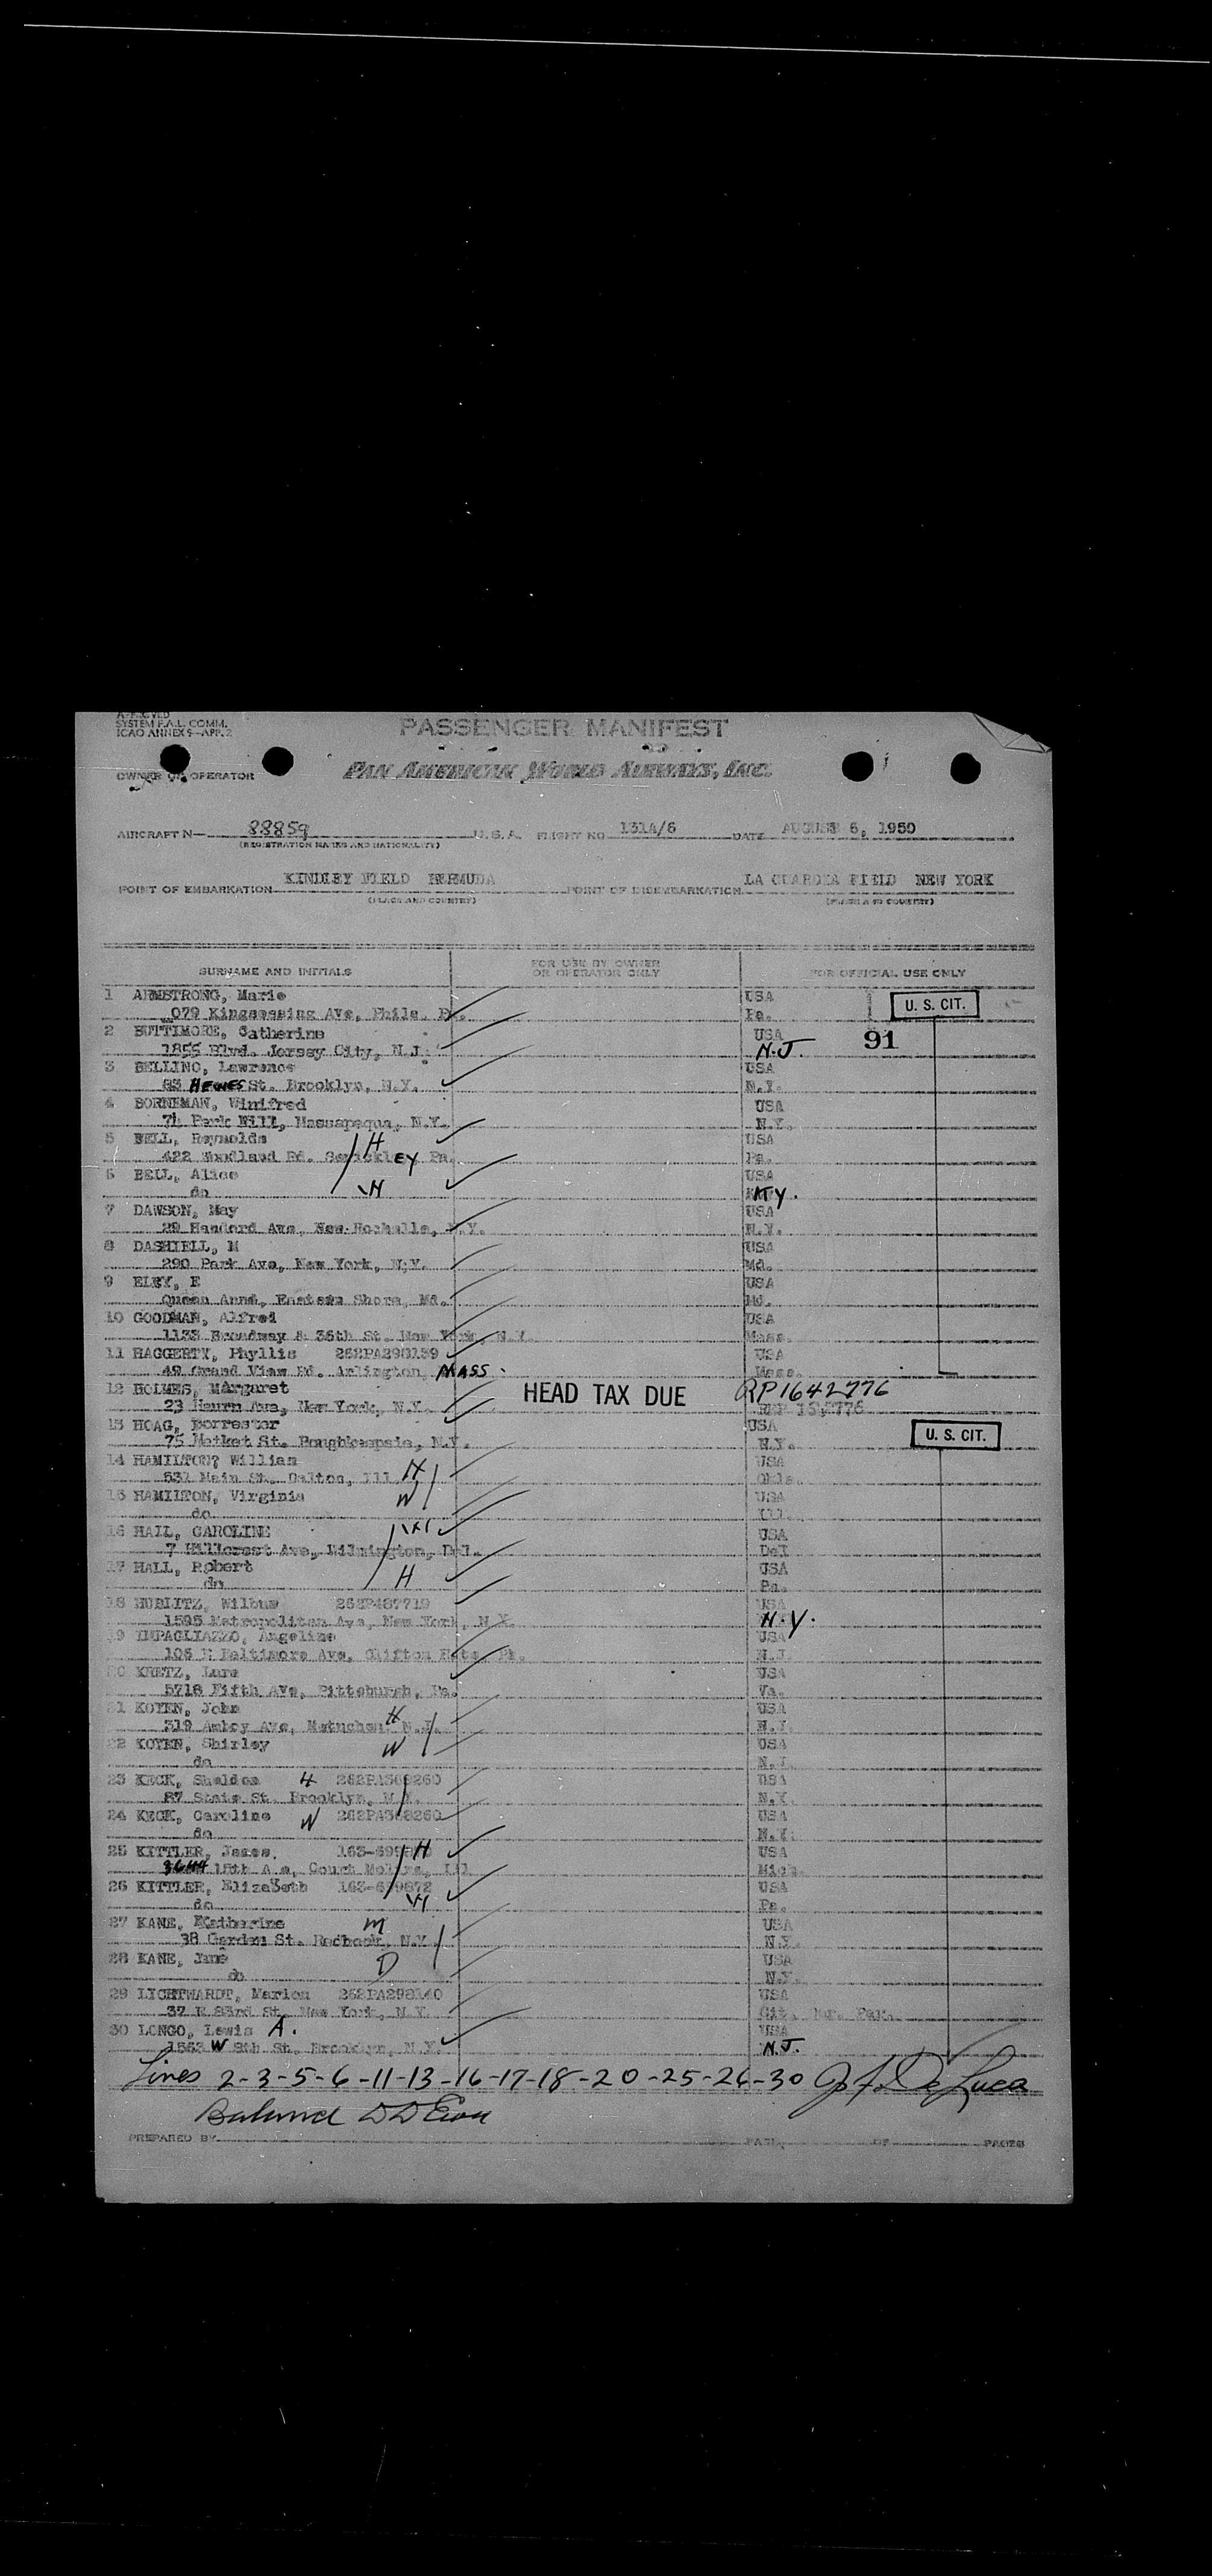 APPROVED
SYSTEM F.A.L. COMM.
ICAO ANNEX 9—APP. 2
PASSENGER MANIFEST
OWNER OR OPERATOR PAN AMERICAN WORLD AIRWAYS, INC.
AIRCRAFT N— 88859 U.S.A. FLIGHT NO 131A/6 DATE AUGUST 6, 1950
(REGISTRATION MARKS AND NATIONALITY)
POINT OF EMBARKATION KINDLEY FIELD BERMUDA POINT OF DISEMBARKATION LA GUARDIA FIELD NEW YORK
(PLACE AND COUNTRY) (PLACE AND COUNTRY)
SURNAME AND INITIALS FOR USE BY OWNER OR OPERATOR ONLY FOR OFFICIAL USE ONLY
1 ARMSTRONG, Marie USA U. S. CIT.
079 Kingsessing Ave, Phila. Pa. Pa.
2 BUTTIMORE, Catherine USA 91
1855 Blvd. Jersey City, N.J. N.J.
3 BELLINO, Lawrence USA
83 HEWES St. Brooklyn, N.Y. N.Y.
4 BORNEMAN, Winifred USA
74 Park Hill, Massapequa, N.Y. N.Y.
5 BELL, Reynolds H USA
422 Woodland Rd. SewickLEY Pa. Pa.
6 BELL, Alice USA
do W KY.
7 DAWSON, May USA
29 Ave, New Rochelle, N.Y. N.Y.
8 DASHIELL, M USA
290 Park Ave, New York, N.Y. Md.
9 ELEY, E USA
Queen Anne, Eastern Shore, Md. Md.
10 GOODMAN, Alfred USA
1133 Broadway & 36th St. New York, N.Y. Mass.
11 HAGGERTY, Phyllis 262PA298139 USA
49 Grand View Rd. Arlington, MASS. Mass.
12 HOLMES, Margaret HEAD TAX DUE RP1642776
23 Ave, New York, N.Y.
13 HOAG, Forrester USA U. S. CIT.
75 Market St. Poughkeepsie, N.Y. N.Y.
14 HAMILTON, William H USA
531 Main St. Dalton, Ill. Okla.
15 HAMILTON, Virginia W USA
do Ill.
16 HALL, CAROLINE W USA
7 Hillcrest Ave, Wilmington, Del. Del
17 HALL, Robert USA
do H Pa.
18 HURLITZ, Wilbum 262P487719 USA
1595 Metropolitan Ave, New York, N.Y. N.Y.
19 IMPAGLIAZZO, Angeline USA
106 E Baltimore Ave, Clifton Hats, Pa. N.J.
20 KRETZ, Lura USA
5718 Fifth Ave, Pittsburgh, Pa. Va.
21 KOYEN, John H USA
319 Amboy Ave, Metuchen N.J. N.J.
22 KOYEN, Shirley W USA
do N.J.
23 KECK, Sheldon H 262PA308260 USA
87 State St. Brooklyn, N.Y. N.Y.
24 KECK, Caroline W 262PA308260 USA
do N.Y.
25 KITTLER, James, H USA
3644 15th Ave, Mich.
26 KITTLER, Elizabeth 163-699872 USA
do W Pa.
27 KANE, Katherine m USA
38 Garden St. Redhook, N.Y. N.Y.
28 KANE, Jane D USA
do N.Y.
29 LICHTWARDT, Marion 262PA298140 USA
37 E 83rd St. New York, N.Y. Cit.
30 LONGO, Lewis A. USA
1563 W 8th St. Brooklyn, N.Y. N.J.
Lines 2-3-5-6-11-13-16-17-18-20-25-26-30 J. F. De Luca
PREPARED BY PAGE OF PAGES